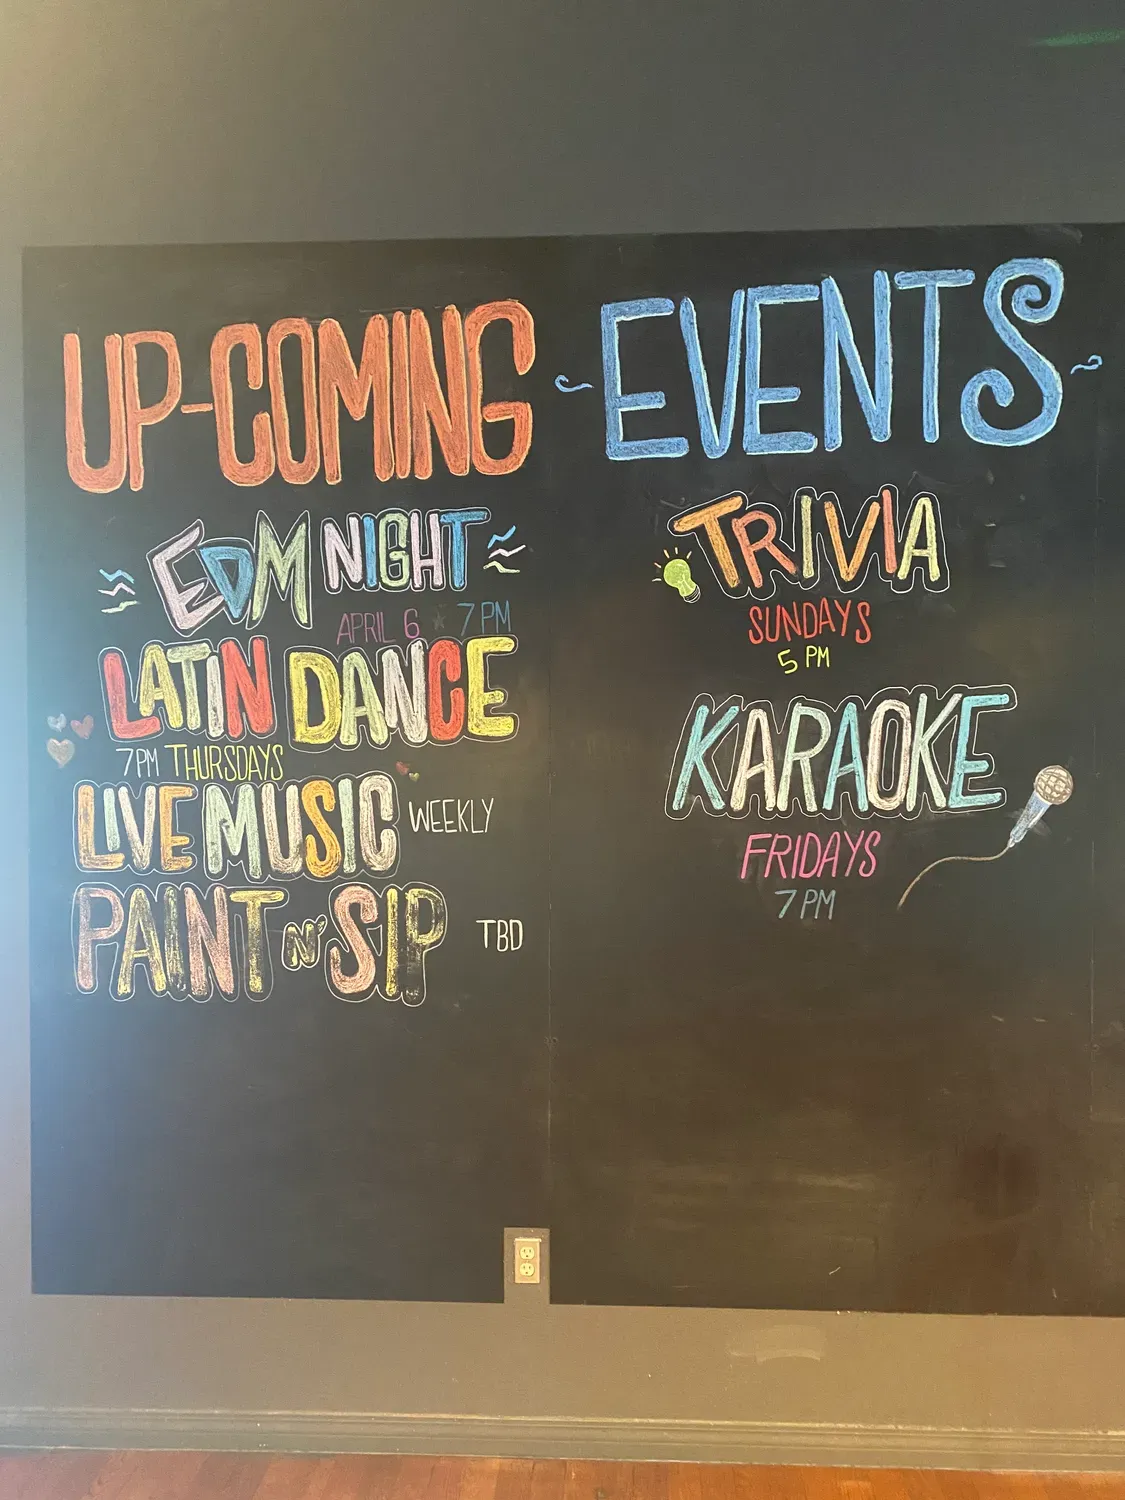 UP-COMING EVENTS
EDM NIGHT
APRIL 6 7 PM
LATIN DANCE
7PM THURSDAYS
LIVE MUSIC WEEKLY
PAINT N' SIP TBD
TRIVIA
SUNDAYS
5 PM
KARAOKE
FRIDAYS
7 PM